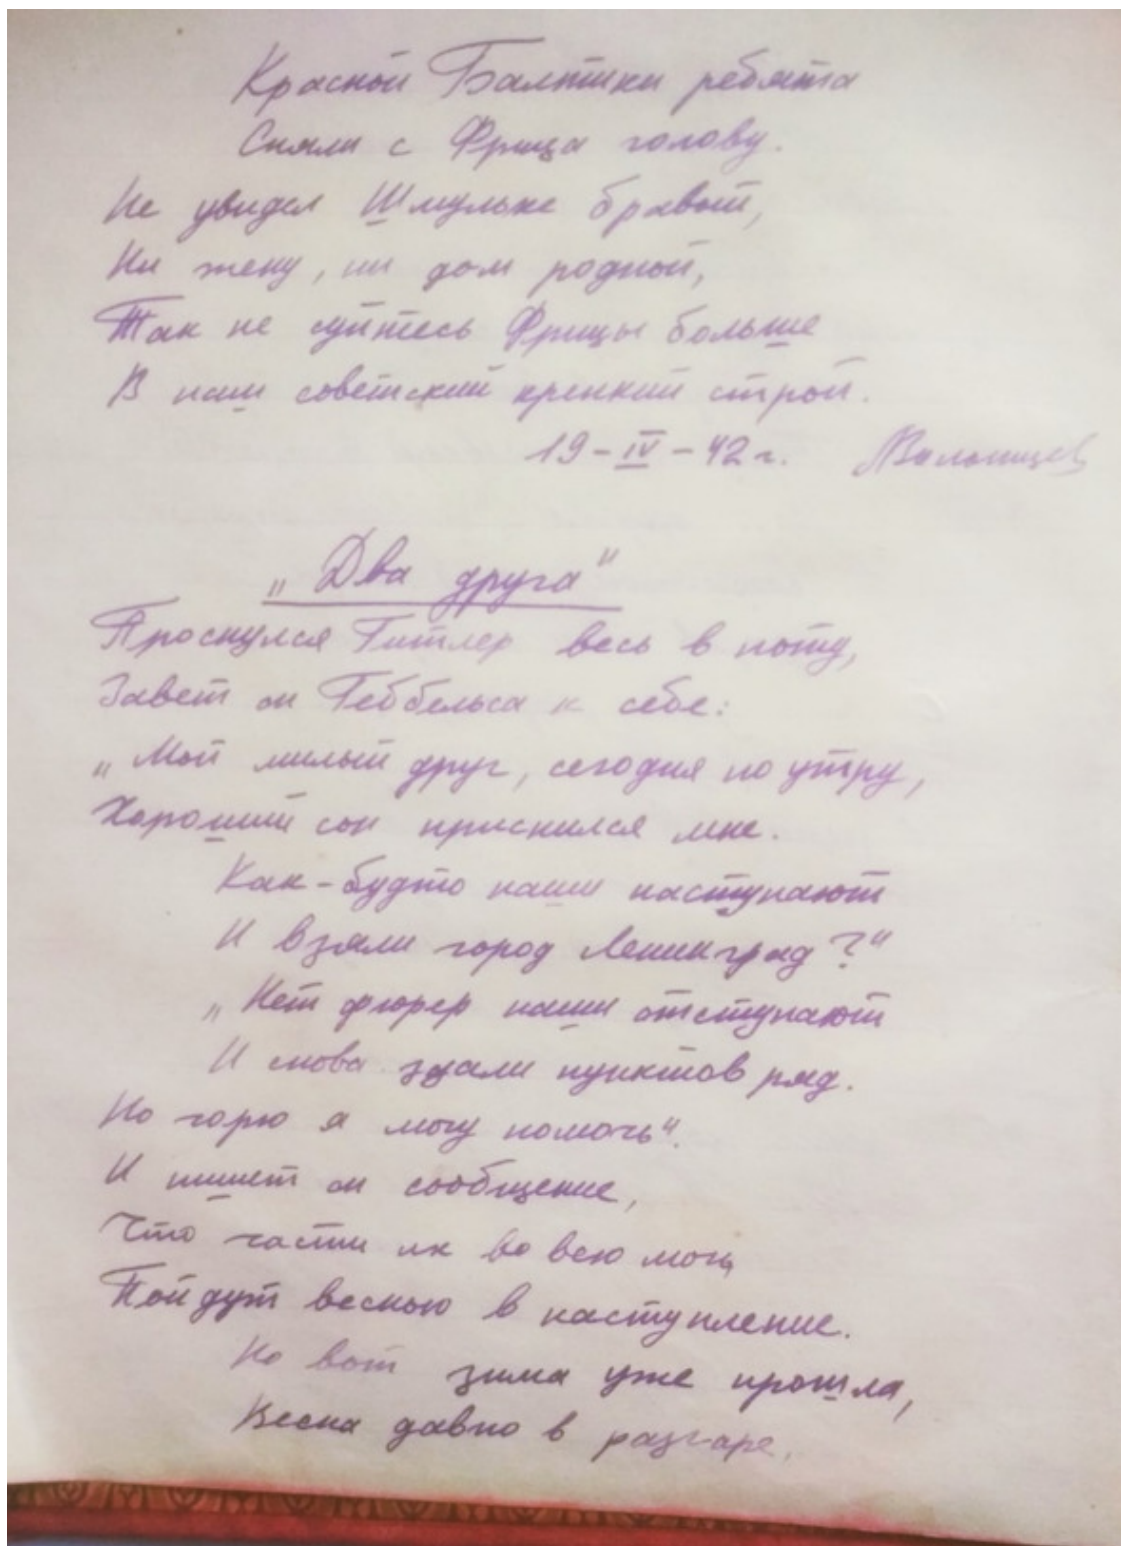 Красной Балтики ребята
Сняли с Фрица голову.
Не увидел Шмульке бравый,
Ни жену, ни дом родной,
Так не суйтесь Фрицы больше
В наш советский крепкий строй.
19-IV-42 г.
„Два друга"
Проснулся Гитлер весь в поту,
Завет он Геббельса к себе:
„Мой милый друг, сегодня по утру,
Хороший сон приснился мне.
Как-будто наши наступают
И взяли город Ленинград?"
„Нет фюрер наши отступают
И снова здали пунктов ряд.
Но горю я могу помочь".
И пишет он сообщение,
Что части их во всю мочь
Пойдут весною в наступление.
Но вот зима уже прошла,
Весна давно в разгаре,